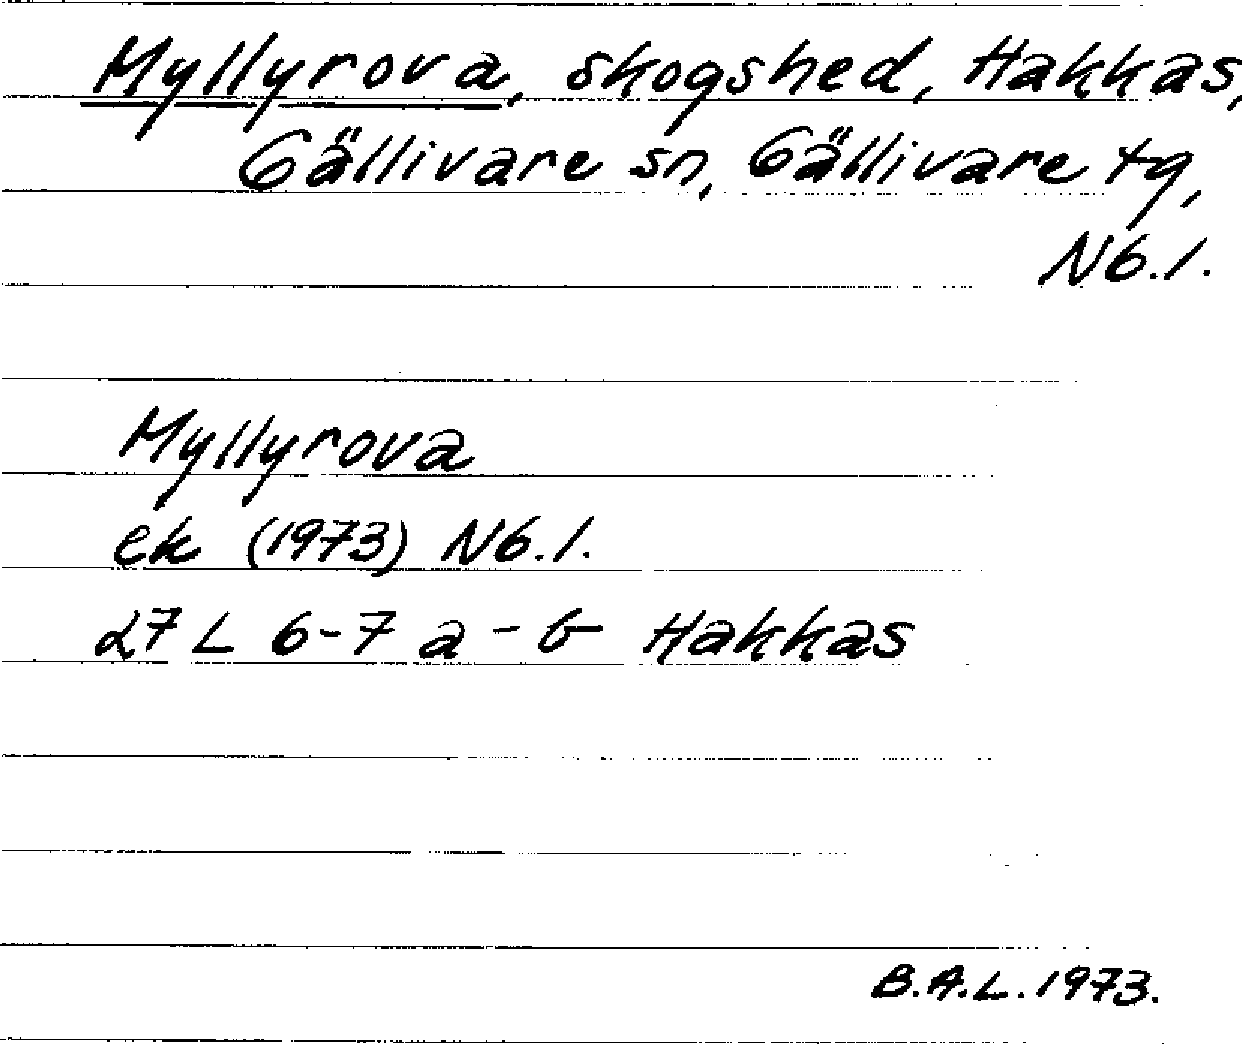 Myllyrova, skogshed, Hakkas,
Gällivare sn, Gällivare tg,
Nb.l.
Myllyrova
ek (1973) Nb.l.
27 L 6-7 a-b Hakkas
B.A.L. 1973.